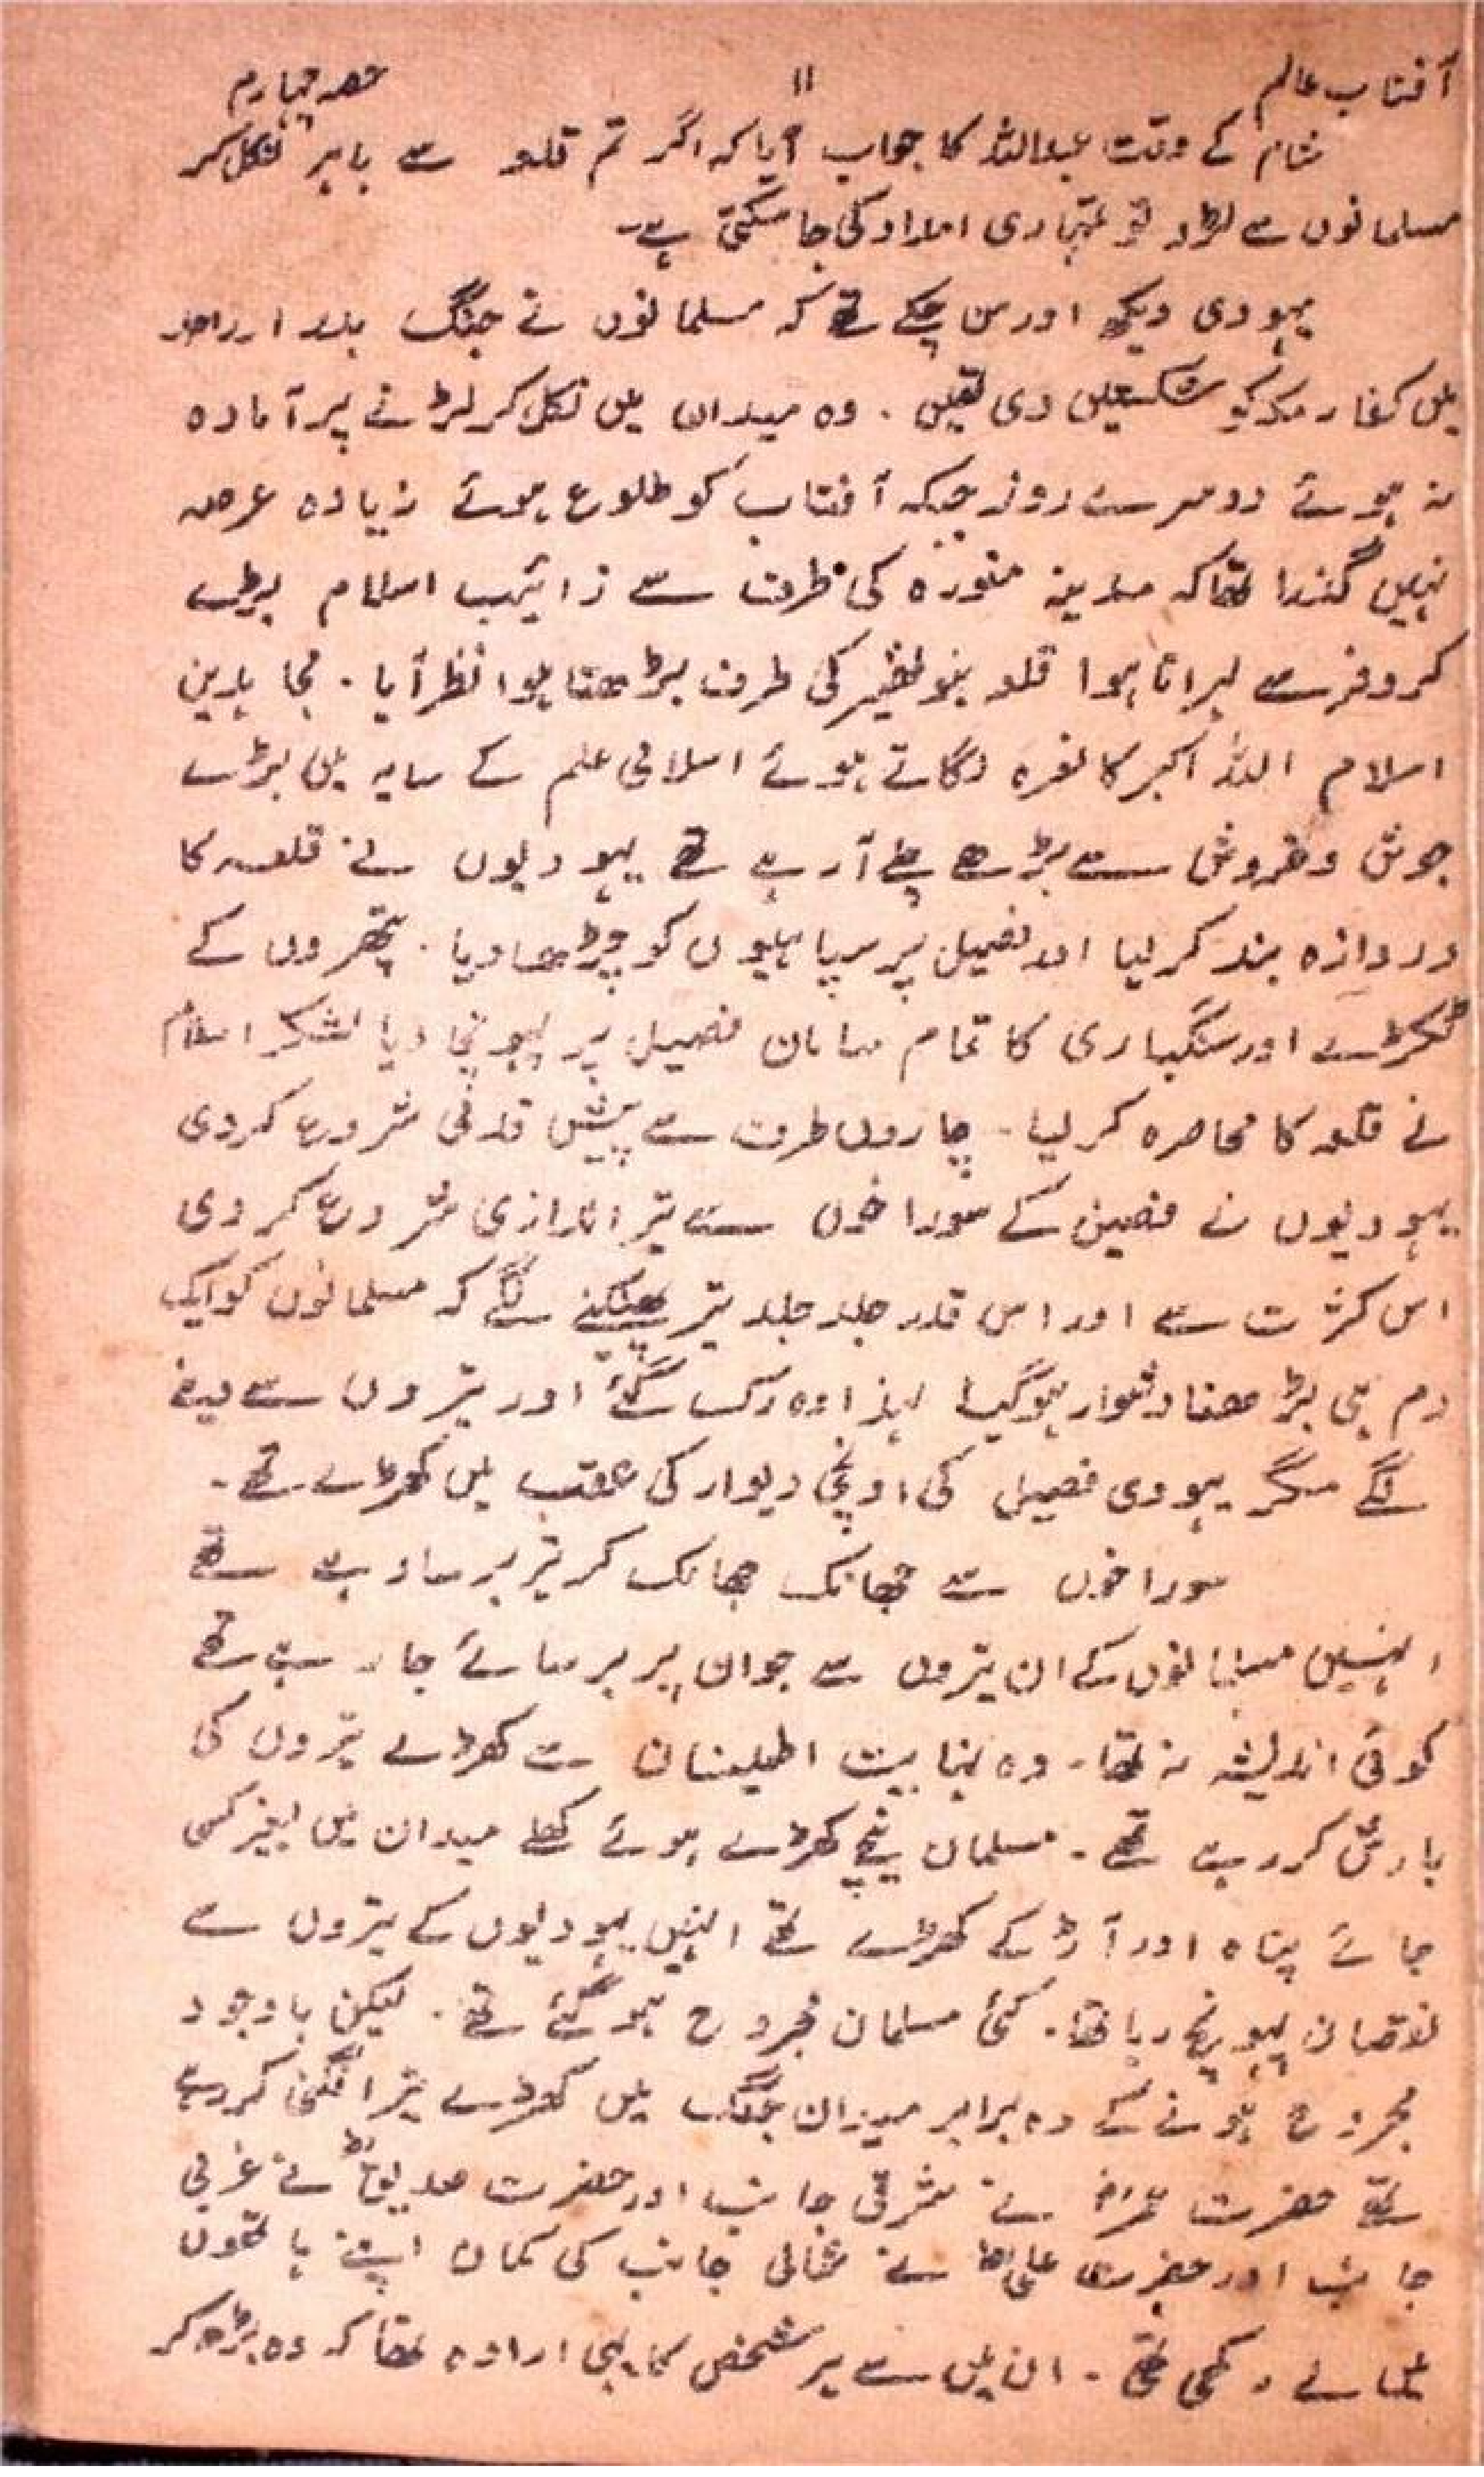 آفتاب عالم ۱۱ حصہ چہارم
شام کے وقت عبداللہ کا جواب آیا کہ اگر تم قلعہ سے باہر نکل کر
مسلمانوں سے لڑو تو تمہاری امداد کی جا سکتی ہے۔
یہودی دیکھ اور سن چکے تھے کہ مسلمانوں نے جنگ بدر اور احد
میں کفار مکہ کو شکستیں دی تھیں ۔ وہ میدان میں نکل کر لڑنے پر آمادہ
نہ ہوئے دوسرے روز جبکہ آفتاب کو طلوع ہوئے زیادہ عرصہ
نہیں گذرا تھا کہ مدینہ منورہ کی طرف سے رائیت اسلام بڑے
کروفر سے لہراتا ہوا قلعہ بنو نضیر کی طرف بڑھتا ہوا نظر آیا ۔ مجاہدین
اسلام اللہ اکبر کا نعرہ لگاتے ہوئے اسلامی علم کے سایہ میں بڑے
جوش و خروش سے بڑھے چلے آ رہے تھے یہودیوں نے قلعہ کا
دروازہ بند کر لیا اور فصیل پر سپاہیوں کو چڑھا دیا ۔ پتھروں کے
ٹکڑے اور سنگباری کا تمام سامان فصیل پر پہونچا دیا لشکر اسلام
نے قلعہ کا محاصرہ کر لیا ۔ چاروں طرف سے پیش قدمی شروع کردی
یہودیوں نے فصیل کے سوراخوں سے تیر اندازی شروع کر دی
اس کثرت سے اور اس قدر جلد جلد تیر پھینکنے لگے کہ مسلمانوں کو ایک
دم ہی بڑھنا دشوار ہوگیا لہذا وہ رک گئے اور تیروں سے
لگے مگر یہودی فصیل کی اونچی دیوار کی عقب میں کھڑے تھے ۔
سوراخوں سے جھانک جھانک کر تیر برسا رہے تھے
انہیں مسلمانوں کے ان تیروں سے جو ان پر برسائے جا رہے تھے
کوئی اندیشہ نہ تھا۔ وہ نہایت اطمینان سے کھڑے تیروں کی
بارش کر رہے تھے ۔ مسلمان نیچے کھڑے ہوئے کھلے میدان میں بغیر کسی
جائے پناہ اور آڑ کے کھڑے تھے انہیں یہودیوں کے تیروں سے
نقصان پہونچ رہا تھا ۔ کئی مسلمان مجروح ہو گئے تھے ۔ لیکن باوجود
مجروح ہونے کے وہ برابر میدان جنگ میں کھڑے تیر افگنی کر رہے
تھے حضرت عمرؓ نے مشرقی جانب اور حضرت صدیقؓ نے غربی
جانب اور حضرت علیؓ نے شمالی جانب کی کمان اپنے ہاتھوں
میں لے رکھی تھی ۔ ان میں سے ہر شخص کا یہی ارادہ تھا کہ وہ بڑھ کر